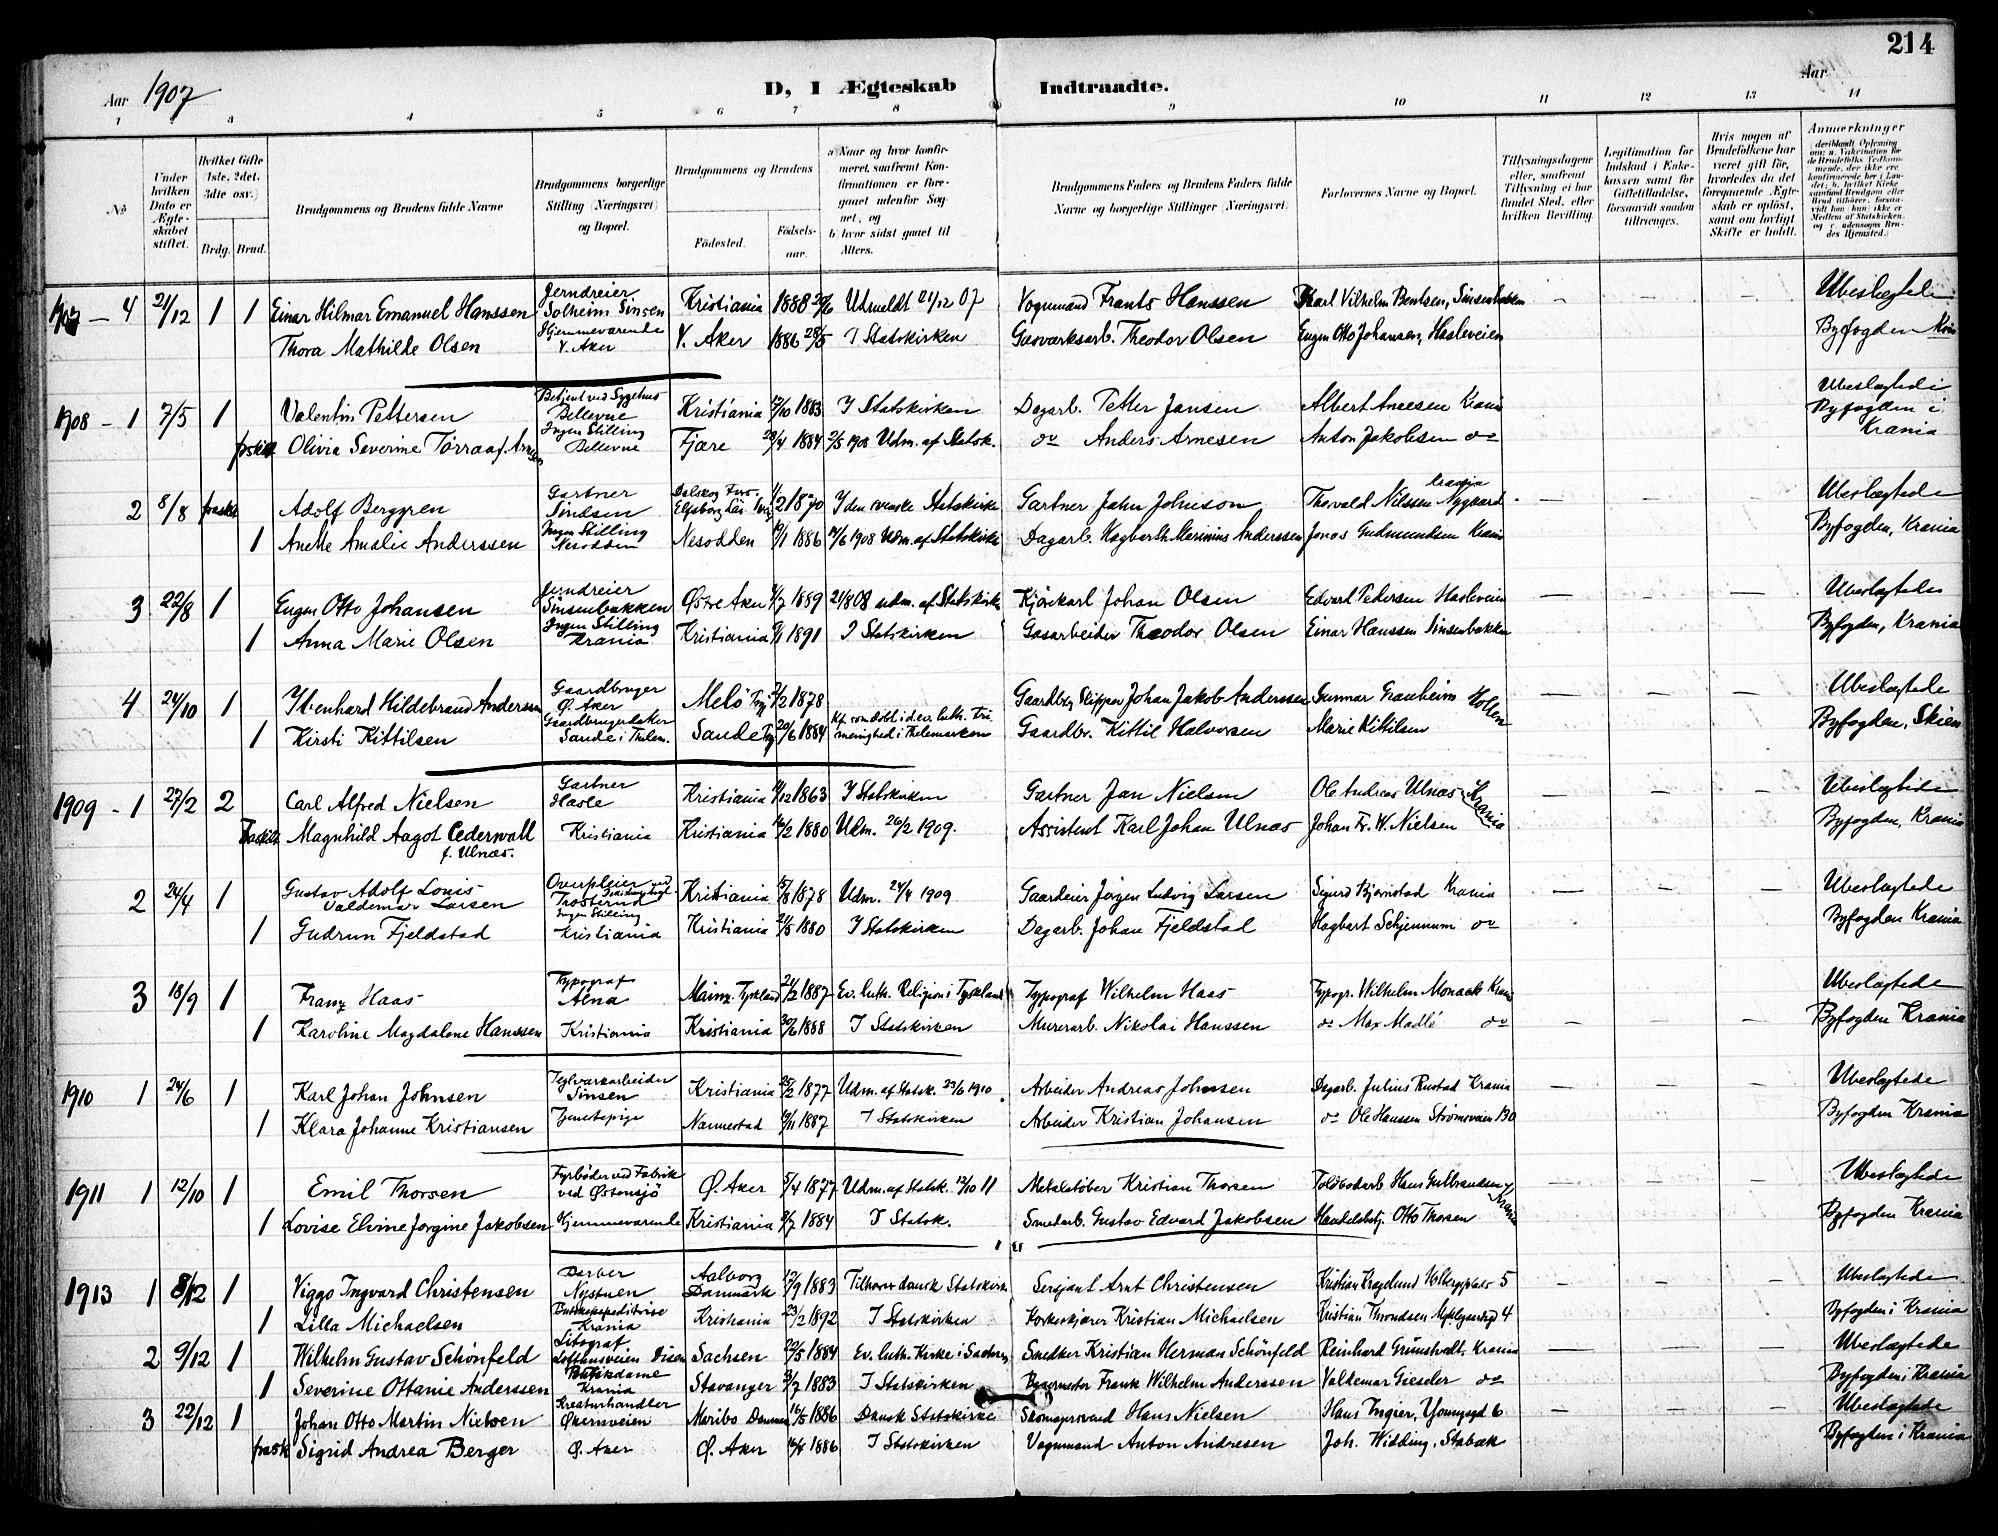 214
Aar 1907
D, I Ægteskab Indtraadte.
Aar
1 2 3 4 5 6 7 8 9 10 11 12 13 14
№
Under hvilken Dato er Ægteskabet stiftet.
Hvilket Gifte 1ste. 2det. 3dte osv.)
Brdg. Brud.
Brudgommens og Brudens fulde Navne
Brudgommens borgerlige Stilling (Næringsvei) og Bopæl.
Brudgommens og Brudens
Fødested. Fødsels-aar.
a) Naar og hvor konfirmeret, saafremt Konfirmationen er foregaaet udenfor Sognet, og
b) hvor sidst gaaet til Alters.
Brudgommens Faders og Brudens Faders fulde Navne og borgerlige Stillinger (Næringsvei)
Forlovernes Navne og Bopæl.
Tillysningsdagene eller, saafremt Tillysning ei har fundet Sted, efter hvilken Bevilling.
Legitimation for Indskud i Enkekassen samt for Giftetilladelse, forsaavidt saadan tiltrænges.
Hvis nogen af Brudefolkene har været gift før, hvorledes da det foregaaende Ægteskab er opløst, samt om lovligt Skifte er holdt.
Anmerkninger
1907 — 4 21/12 1 1 Einar Hilmar Emanuel Hanssen Jerndreier Solheim Sinsen Kristiania 1888 Udmeldt 21/12 07 Vognmand Frants Hanssen Karl Vilhelm Bentsen, Sinsenbakken — — — Ubeslegtede
Thora Mathilde Olsen Hjemmeværende V. Aker V. Aker 1886 28/5 I Statskirken Gasværksarb. Theodor Olsen Eugen Otto Johansen, Hasleveien Byfogden Krania
1908 - 1 7/5 1 Valentin Pettersen Betjent ved Sygehus Bellevue Kristiania 1883 I Statskirken Dagarb. Petter Jansen Albert Arnesen Krania Ubeslegtede
frskilt Olivia Severine Tørraa f. Arnesen Ingen Stilling Bellevue Fjære 1884 1908 Udm. af Statsk. do Anders Arnesen Anton Jakobsen do Byfogden i Krania
2 8/8 fraskt Adolf Berggren Gartner Sindsen Elfsborg Län 1870 I den svenske Statskirke Gartner John Johnson Thorvald Nilssen Nygaard Krania — — — Ubeslægtede
1 Anette Amalie Anderssen Ingen Stilling Nesodden Nesodden 1886 1908 Udm. af Statskirke Dagarb. Hagbarth Marinius Anderssen Jonas Gudmundsen Krania Byfogden, Krania
3 22/8 1 Eugen Otto Johansen Jerndreier Sinsenbakken Østre Aker 1889 21/8 08 udm. af Statskirke Kjørkarl Johan Olsen Edvard Pedersen Hasleveien — — — Ubeslægtede
1 Anna Marie Olsen Ingen Stilling Krania Kristiania 1891 I Statskirken Gasarbeider Theodor Olsen Einar Hanssen Sinsenbakken Byfogden, Krania
4 24/10 1 Ibenhard Hildebrand Anderssen Gaardbruger Ø. Aker Melø 1878 Gaardbr. Skipper Johan Jakob Anderssen Gunnar Grauheim Hollen — — — Ubeslægtede
1 Kirsti Kittilsen Gaardbrugerdatter Sande i Thelem. Sande 1884 Kf. som døbt i d. ev. luth. frimenighed i Thelemarken Gaardbr. Kittil Halvorsen Marie Kittilsen Byfogden, Skien
1909 - 1 27/2 2 Carl Alfred Nielsen Gartner Hasle Kristiania 1863 I Statskirken Gartner Jan Nielsen Ole Andreas Ulnæs Krania — — — Ubeslægtede
Fraskilt Magnhild Aagot Cederwall f. Ulnæs. Kristiania Kristiania 1880 Udm. 26/2 1909. Assistent Karl Johan Ulnæs Johan Fr. W. Nielsen Byfogden, Krania
2 24/4 1 Gustav Adolf Louis Valdemar Larsen Overpleier ved Trosterud Kristiania 1878 Udm. 24/4 1909 Gaardeier Jørgen Ludvig Larsen Sigurd Bjørnstad Krania — — — Ubeslægtede
1 Gudrun Fjeldstad Ingen Stilling Kristiania Kristiania 1880 I Statskirken Dagarb. Johan Fjeldstad Hagbart Schjennum do Byfogden Krania
3 18/9 1 Franz Haas Typograf Alna Mainz Tyskland 1887 Ev. luth. Religion i Tyskland Typograf Wilhelm Haas Typogr. Wilhelm Monack Krania — — — Ubeslægtede
1 Karoline Magdalene Hanssen Kristiania Kristiania 1888 I Statskirken Murerarb. Nikolai Hanssen do Max Madlé do Byfogden Krania
1910 1 24/6 1 Karl Johan Johnsen Teglværkarbeider Sinsen Kristiania 1877 Udm. af Statsk. 23/6 1910 Arbeider Andreas Johnsen Dagarb. Julius Rustad Krania — — — Ubeslægtede
1 Klara Johanne Kristiansen Tjenestepige Nannestad 1887 I Statskirken Arbeider Kristian Johansen do Ole Hanssen Strømsveien 130 Byfogden Krania
1911 1 12/10 1 Emil Thorsen Fyrbøder ved Fabrik ved Østensjø Ø. Aker 5/4 1877 Udm. af Statsk. 12/10 11 Metalstøber Kristian Thorsen Toldbodarb Hans Gulbrandsen Krania — — — Ubeslægtede
1 Lovise Elvine Jørgine Jakobsen Hjemmeværende Kristiania 1884 I Statsk. Smedarb. Gustav Edvard Jakobsen Handelsbetj. Otto Thorsen Byfogden Krania
1913 1 8/12 1 Viggo Ingvard Christensen Nystuen Aalborg Danmark 1883 Tilhører dansk Statskirke Sersjant Arnt Christensen Kristian Kragelund Holbergplads 5 — — — Ubeslægtede
1 Lilla Michaelsen Krania Kristiania 23/2 1892 I Statskirken Korkskjærer Kristian Michaelsen Kristian Throndsen 4 Byfogden i Krania
2 9/12 1 Wilhelm Gustav Schönfeld Litograf Lofthusveien Disen Sachsen 1884 Ev. luth. Kirke i Sachsen Snedker Kristian Herman Schönfeld Reinhard Grünstvedt, Krania — — — Ubeslægtede
1 Severine Ottanie Anderssen Butikdame Krania Stavanger 1883 I Statskirken Bygmester Frank Wilhelm Anderssen Valdemar Giesler do Byfogden i Krania
3 22/12 1 Johan Otto Martin Nielsen Kreaturhandler Økernveien Maribo Danmark 1886 Dansk Statskirke Skomagersvend Hans Nielsen Hans Ingier, Youngsgd 6 — — — Ubeslægtede
frask Sigrid Andrea Berger Ø. Aker Ø. Aker 1886 I Statskirken Vognmand Anton Andresen Joh. Widding, Stabæk Byfogden i Krania